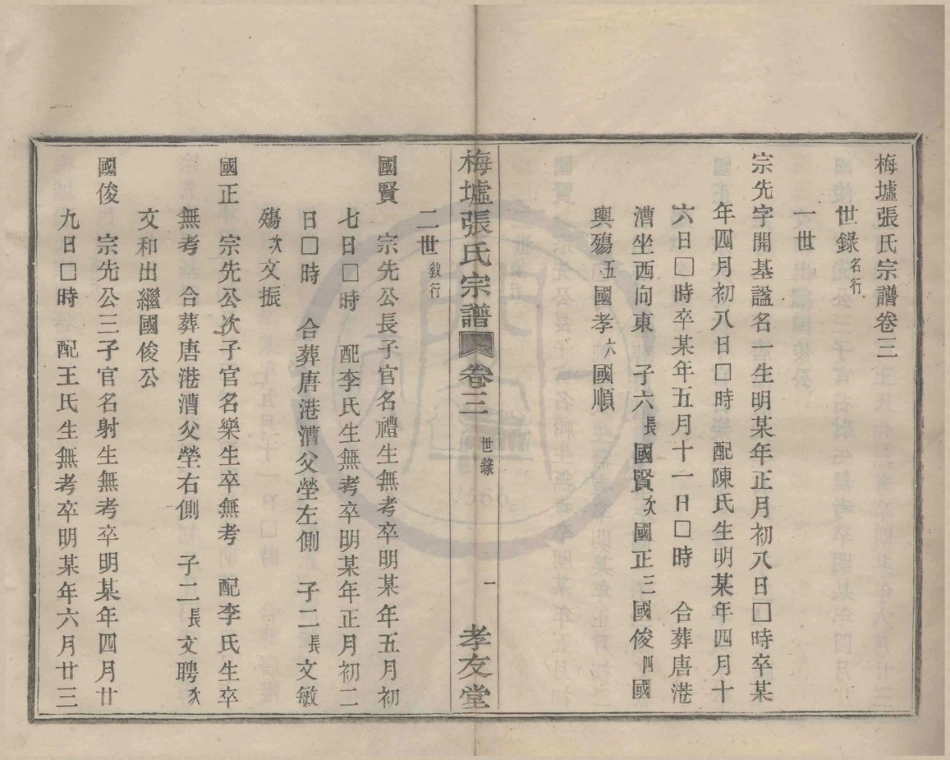 梅墟張氏宗譜卷三
世錄名行
一世
宗先字開基諡名一生明某年正月初八日□時卒某
年四月初八日□時　配陳氏生明某年四月十
六日□時卒某年五月十一日□時　合葬唐港
漕坐西向東　子六長國賢次國正三國俊四國
興殤五國孝六國順
梅墟張氏宗譜　卷三　世錄　一　孝友堂
二世敘行
國賢　宗先公長子官名禮生無考卒明某年五月初
七日□時　配李氏生無考卒明某年正月初二
日□時　合葬唐港漕父塋左側　子二長文敏
殤次文振
國正　宗先公次子官名樂生卒無考　配李氏生卒
無考　合葬唐港漕父塋右側　子二長文聘次
文和出繼國俊公
國俊　宗先公三子官名射生無考卒明某年四月廿
九日□時　配王氏生無考卒明某年六月廿三